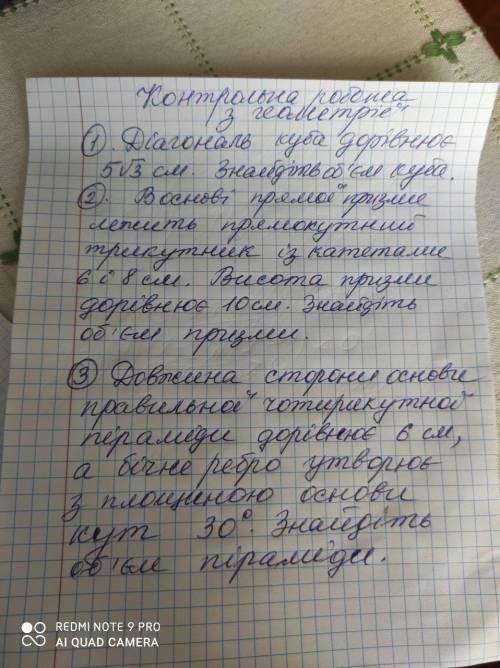 Контрольна робота
з геометрії
① Діагональ куба дорівнює
5√3 см. Знайдіть об'єм куба.
② В основі прямої призми
лежить прямокутний
трикутник із катетами
6 і 8 см. Висота призми
дорівнює 10 см. Знайдіть
об'єм призми.
③ Довжина сторони основи
правильної чотирикутної
піраміди дорівнює 6 см,
а бічне ребро утворює
з площиною основи
кут 30°. Знайдіть
об'єм піраміди.
REDMI NOTE 9 PRO
AI QUAD CAMERA